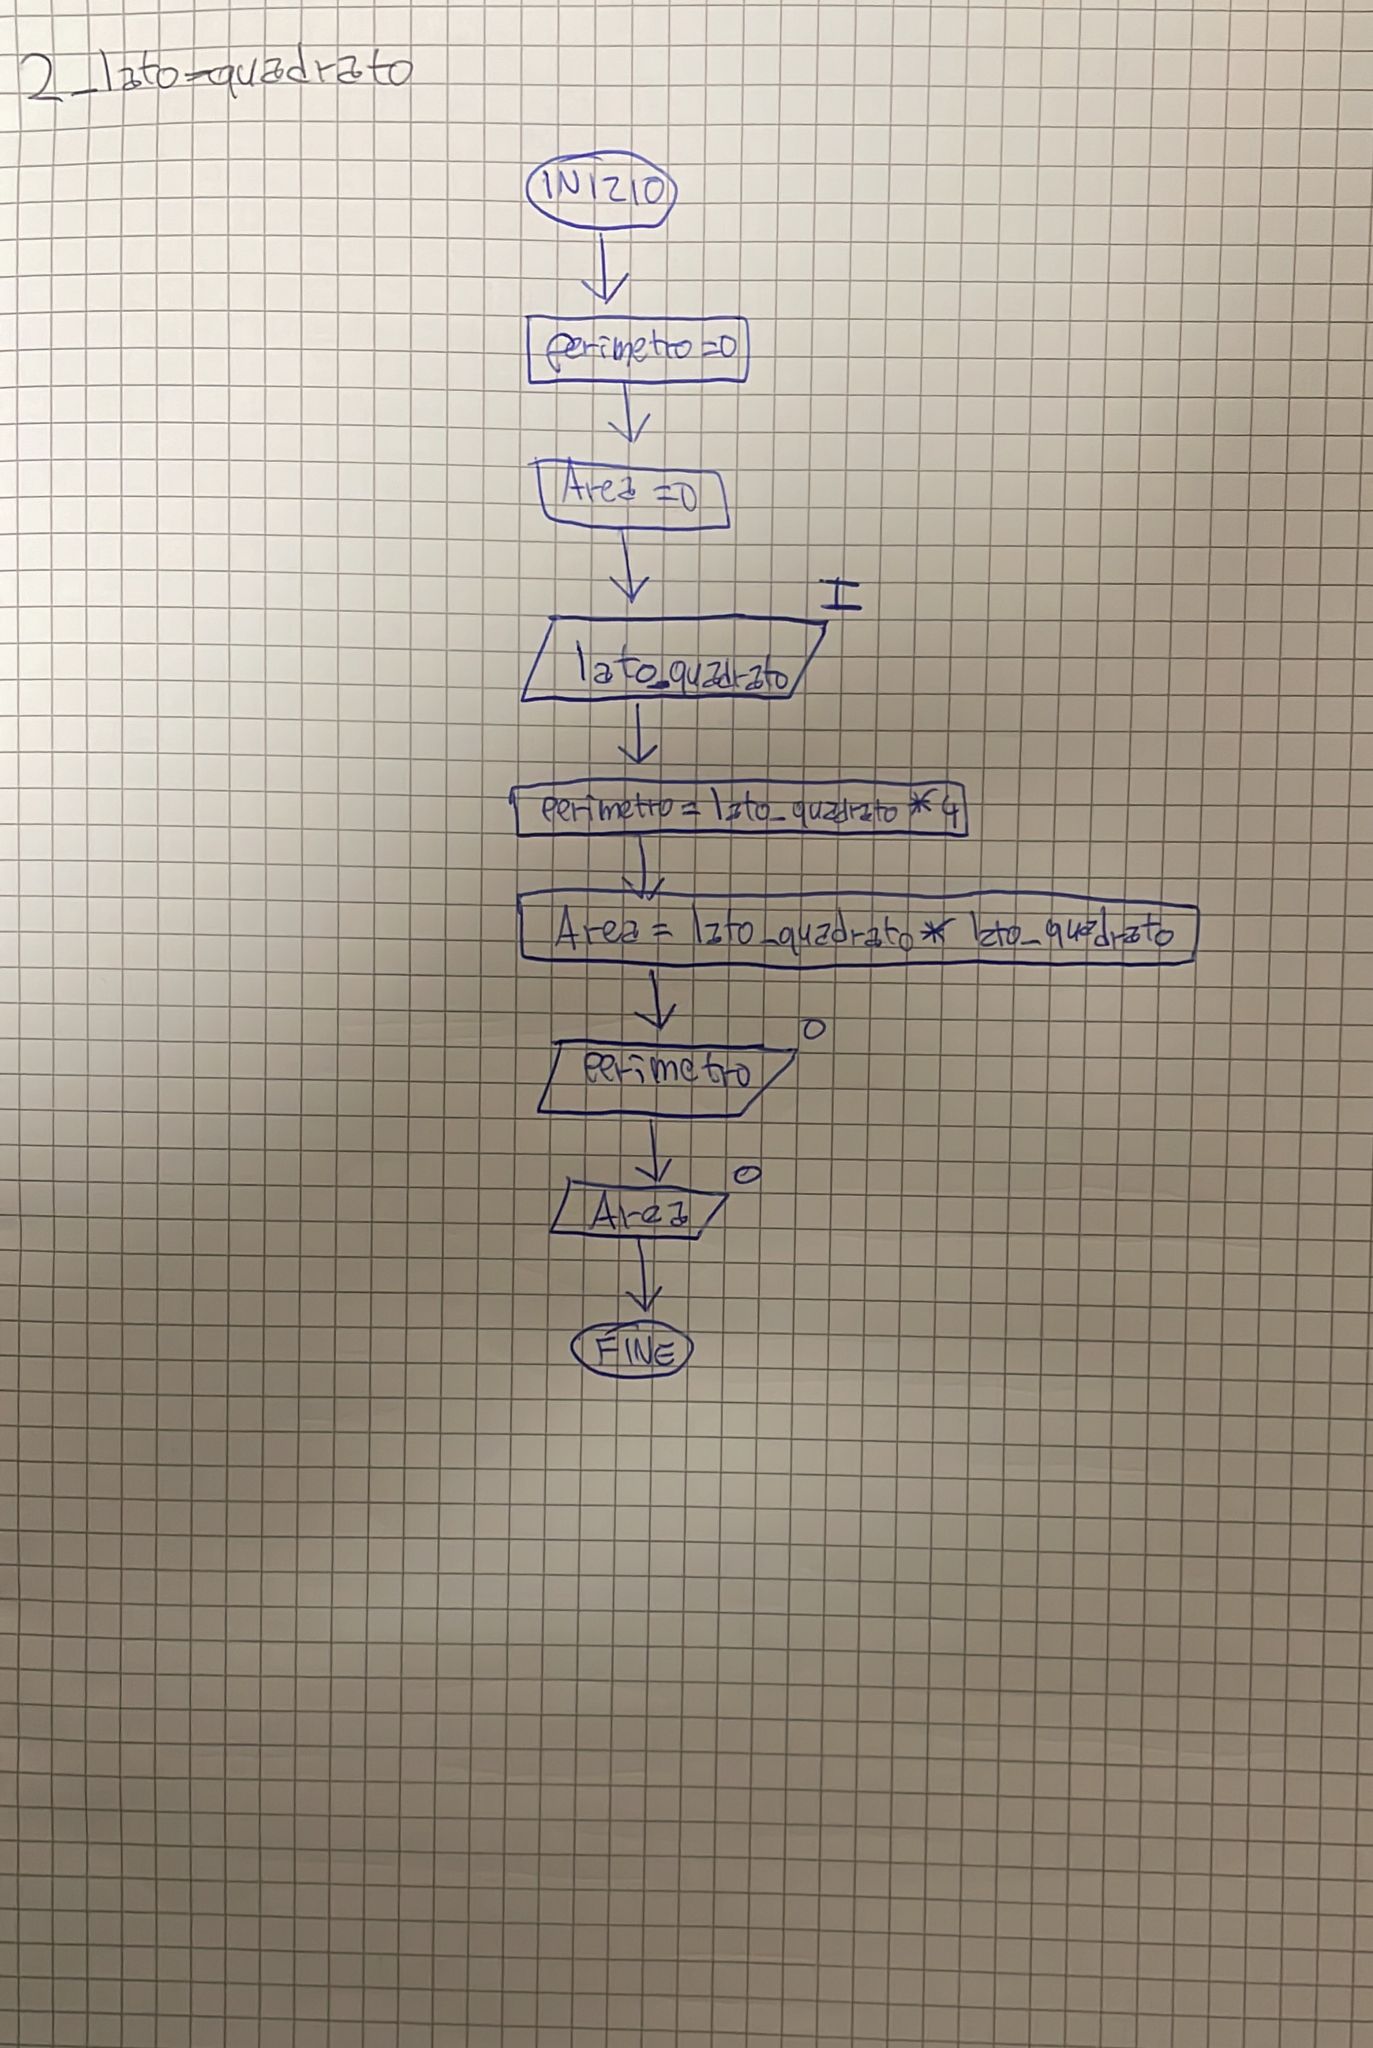 2_lato_quadrato
INIZIO
perimetro=0
Area=0
I
lato_quadrato
perimetro = lato_quadrato * 4
Area = lato_quadrato * lato_quadrato
O
perimetro
O
Area
FINE